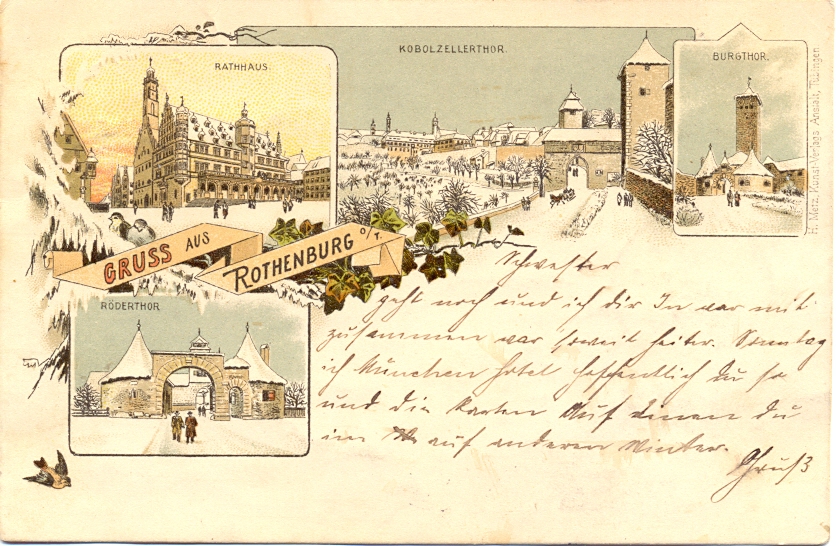 RATHHAUS.
KOBOLZELLERTHOR.
BURGTHOR.
H. Metz, Kunst-Verlags Anstalt, Tübingen
GRUSS AUS
ROTHENBURG O/T.
RÖDERTHOR
Schwester
geht noch und ich dir In war mit
zusammen war soweit heiter. Sonntag
ich München Hotel hoffentlich du so
und die Karten Auf du
im auf anderen Winter.
Gruß